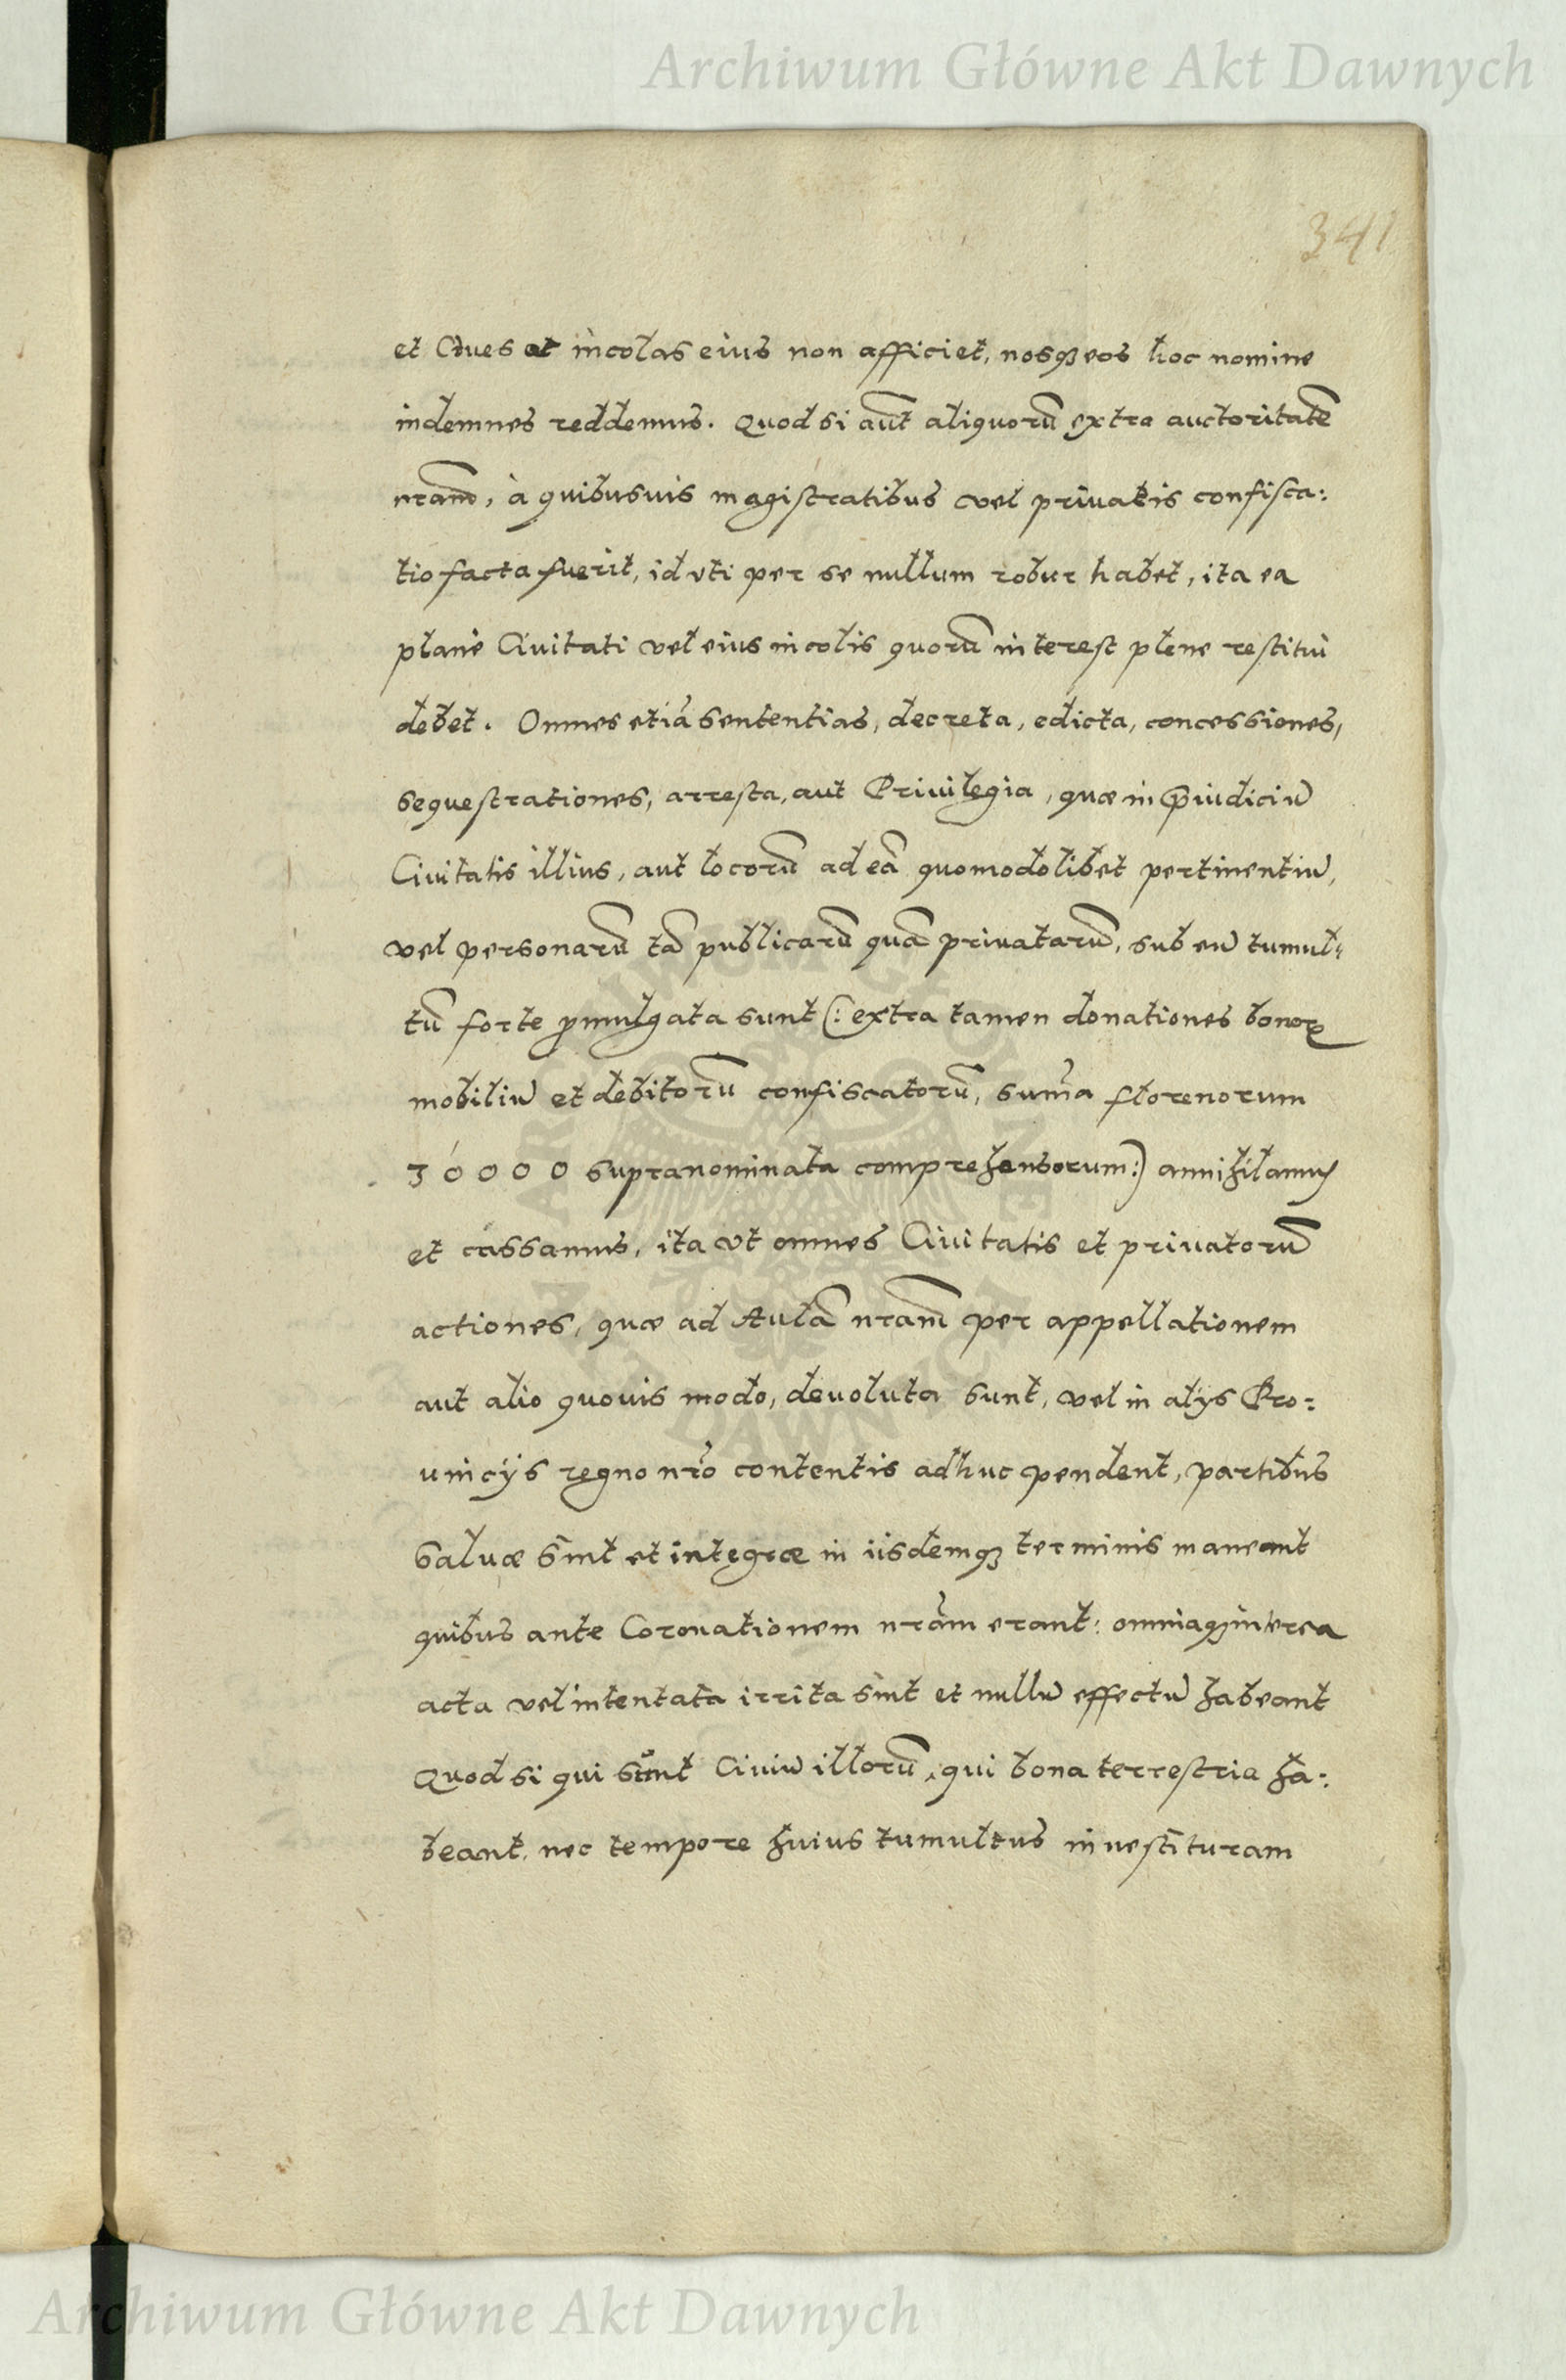 Archiwum Główne Akt Dawnych
341
et Ciues et incolas eius non afficiet, nosq₃ eos hoc nomine
indemnes reddemus. Quod si aut̃ aliquorũ extra auctoritatẽ
nram̃, à quibusuis magistratibus vel priuatis confisca:
tio facta fuerit, id vti per se nullum robur habet, ita ea
planè Ciuitati vel eius incolis quorũ interest plene restitui
debet. Omnes etiã sententias, decreta, edicta, concessiones,
sequestrationes, arresta, aut Priuilegia, quæ in p̃iudiciũ
Ciuitatis illius, aut locorũ ad eã quomodolibet pertinentiũ,
vel personarũ tã publicarũ quã priuatarũ, sub eũ tumul=
tũ forte ꝓmulgata sunt (: extra tamen donationes bonoꝝ
mobiliũ et debitorũ confiscatorũ, sum̃a florenorum
30000 supranominata comprehensorum :) annihilamus
et cassamus, ita vt omnes Ciuitatis et priuatorũ
actiones, quæ ad Aulã nram̃ per appellationem
aut alio quouis modo, deuoluta sunt, vel in alijs Pro:
uincijs regno nrõ contentis adhuc pendent, partibus
saluæ sint et integræ in iisdemq₃ terminis maneant
quibus ante Coronationem nrãm erant: omniaq₃ interea
acta vel intentata irrita sint et nullũ effectũ habeant
Quod si qui sunt Ciuiũ illorũ, qui bona terrestria ha:
beant, nec tempore huius tumultus inuestituram
ARCHIWUM GŁÓWNE
AKT DAWNYCH
Archiwum Główne Akt Dawnych